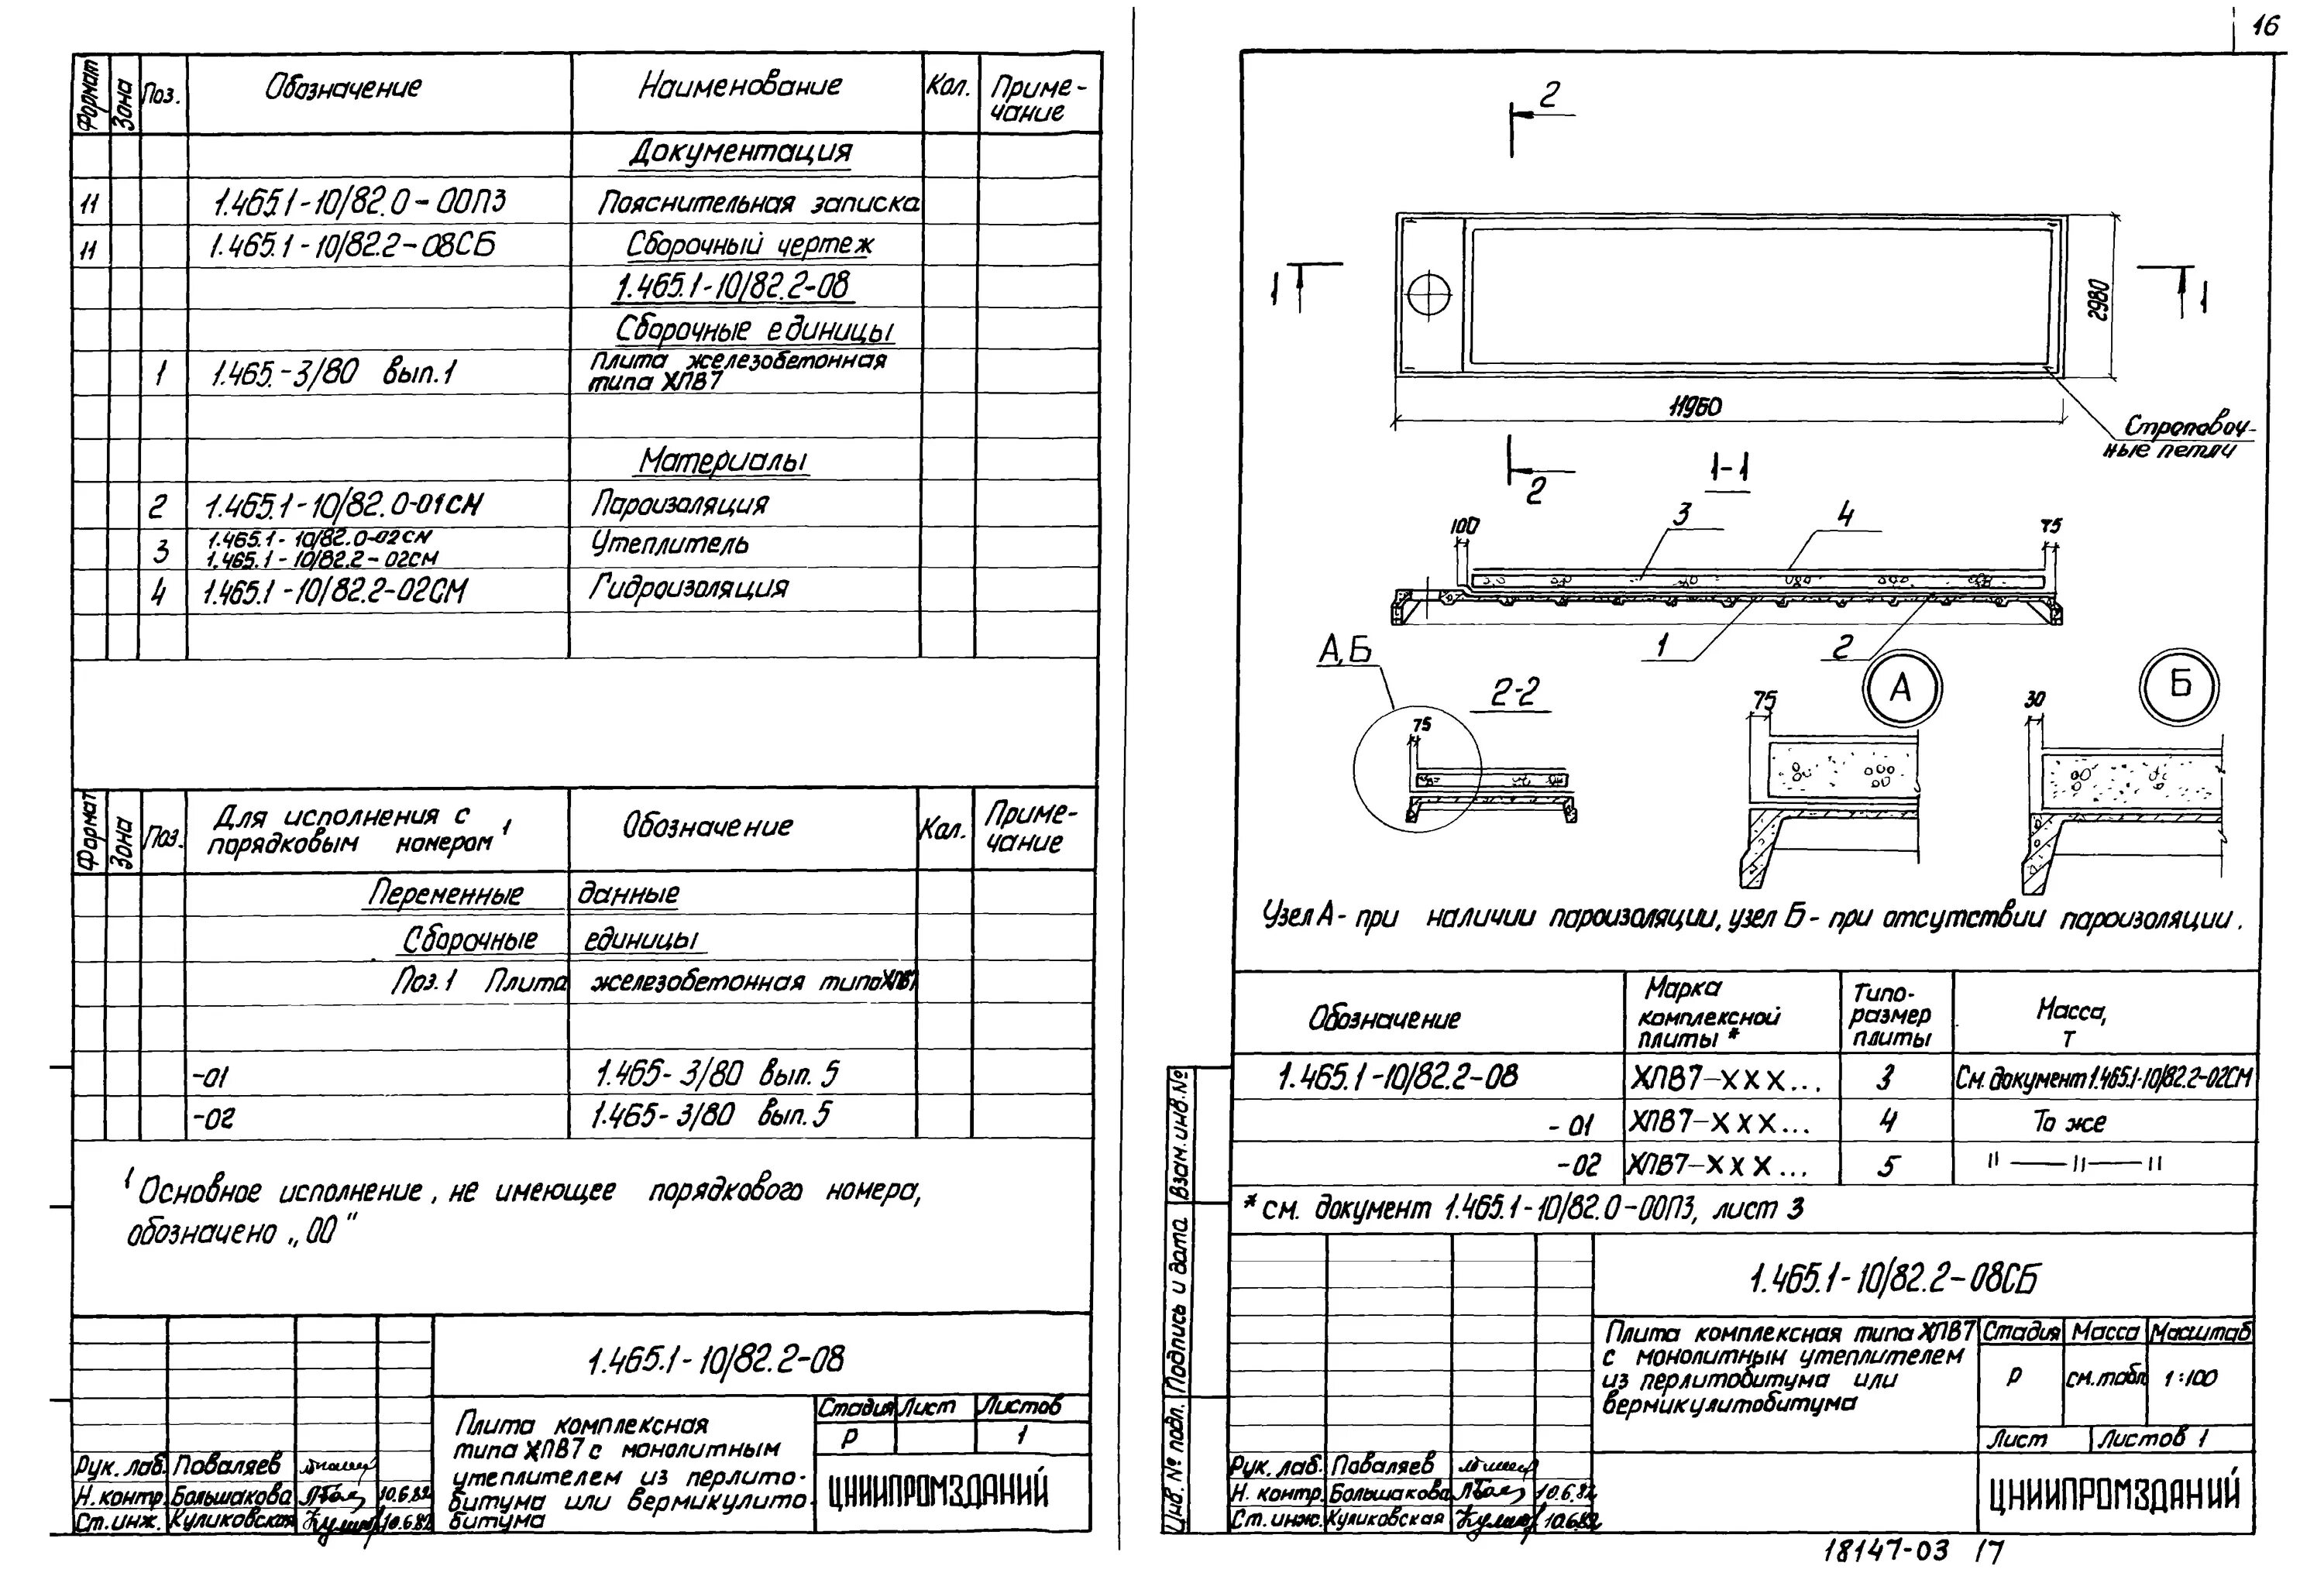 16
Формат Зона Поз. Обозначение Наименование Кол. Приме-
чание
Документация
11 1.465.1-10/82.0-00ПЗ Пояснительная записка
11 1.465.1-10/82.2-08СБ Сборочный чертеж
1.465.1-10/82.2-08
Сборочные единицы
1 1.465.-3/80 вып.1 Плита железобетонная
типа ХПВ7
Материалы
2 1.465.1-10/82.0-01СМ Пароизоляция
3 1.465.1-10/82.0-02СМ Утеплитель
1.465.1-10/82.2-02СМ
4 1.465.1-10/82.2-02СМ Гидроизоляция
Формат Зона Поз. Для исполнения с
порядковым номером 1 Обозначение Кол. Приме-
чание
Переменные данные
Сборочные единицы
Поз.1 Плита железобетонная типа ХПВ7
-01 1.465-3/80 вып.5
-02 1.465-3/80 вып.5
1 Основное исполнение, не имеющее порядкового номера,
обозначено „00"
1.465.1-10/82.2-08
Плита комплексная
типа ХПВ7 с монолитным
утеплителем из перлито-
битума или вермикулито-
битума
Стадия Лист Листов
Р 1
ЦНИИПРОМЗДАНИЙ
Рук. лаб. Поваляев
Н. контр. Большакова 10.6.82
Ст. инж. Куликовская 10.6.82
2
1 1
2980
11960
Строповоч-
ные петли
2
1-1
100 3 4 75
1 2
А,Б
2-2
75
А
75
Б
30
Узел А - при наличии пароизоляции, узел Б - при отсутствии пароизоляции.
Обозначение Марка
комплексной
плиты * Типо-
размер
плиты Масса,
т
1.465.1-10/82.2-08 ХПВ7-ХХХ... 3 См. документ 1.465.1-10/82.2-02СМ
-01 ХПВ7-ХХХ... 4 То же
-02 ХПВ7-ХХХ... 5 "—"—"
* см. документ 1.465.1-10/82.0-00ПЗ, лист 3
Взам. инв. №
Подпись и дата
Инв. № подл.
1.465.1-10/82.2-08СБ
Плита комплексная типа ХПВ7
с монолитным утеплителем
из перлитобитума или
вермикулитобитума
Стадия Масса Масштаб
Р см. табл 1:100
Лист Листов 1
ЦНИИПРОМЗДАНИЙ
Рук. лаб. Поваляев
Н. контр. Большакова 10.6.82
Ст. инж. Куликовская 10.6.82
18147-03 17